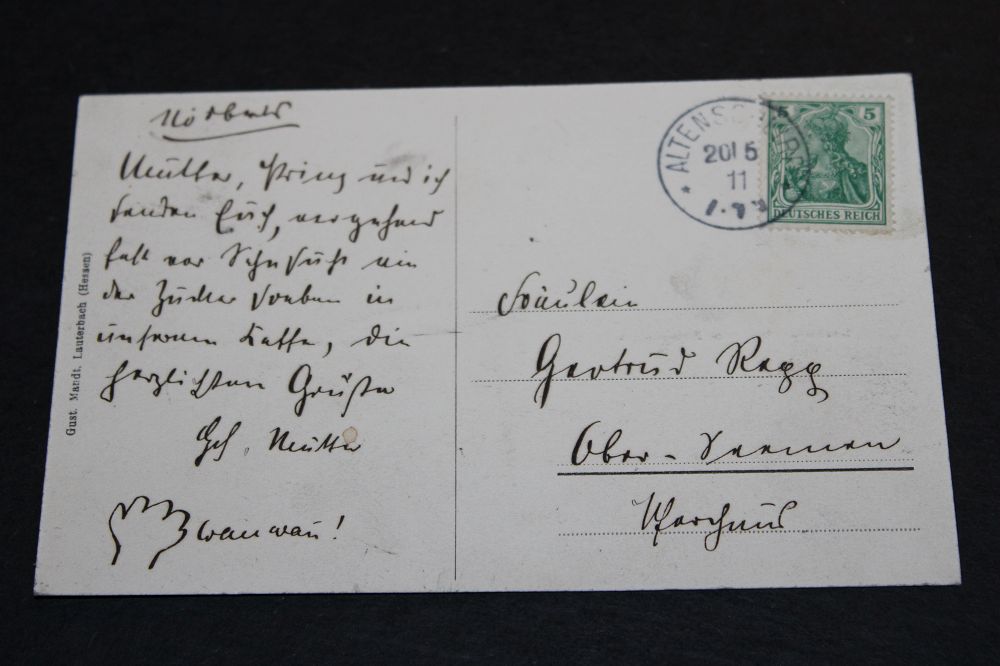 Mutter, Prinz und ich
senden Euch, vergehend
fast vor Sehnsucht wie
der Zucker soeben in
unserem Kaffe, die
herzlichsten Grüße
Mutter
wau wau!
Gust. Mandt, Lauterbach (Hessen)
ALTENSC
20 5
11
5 5
DEUTSCHES REICH
Fräulein
Gertrud Rapp
Ober-Seemen
Pfarrhaus